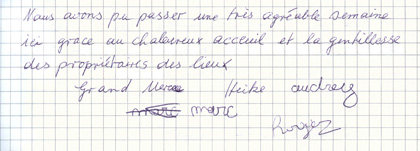 Nous avons pu passer une très agréable semaine
ici grace au chaleureux acceuil et la gentillesse
des propriétaires des lieux
Grand Merci Heike audrey
marc marc